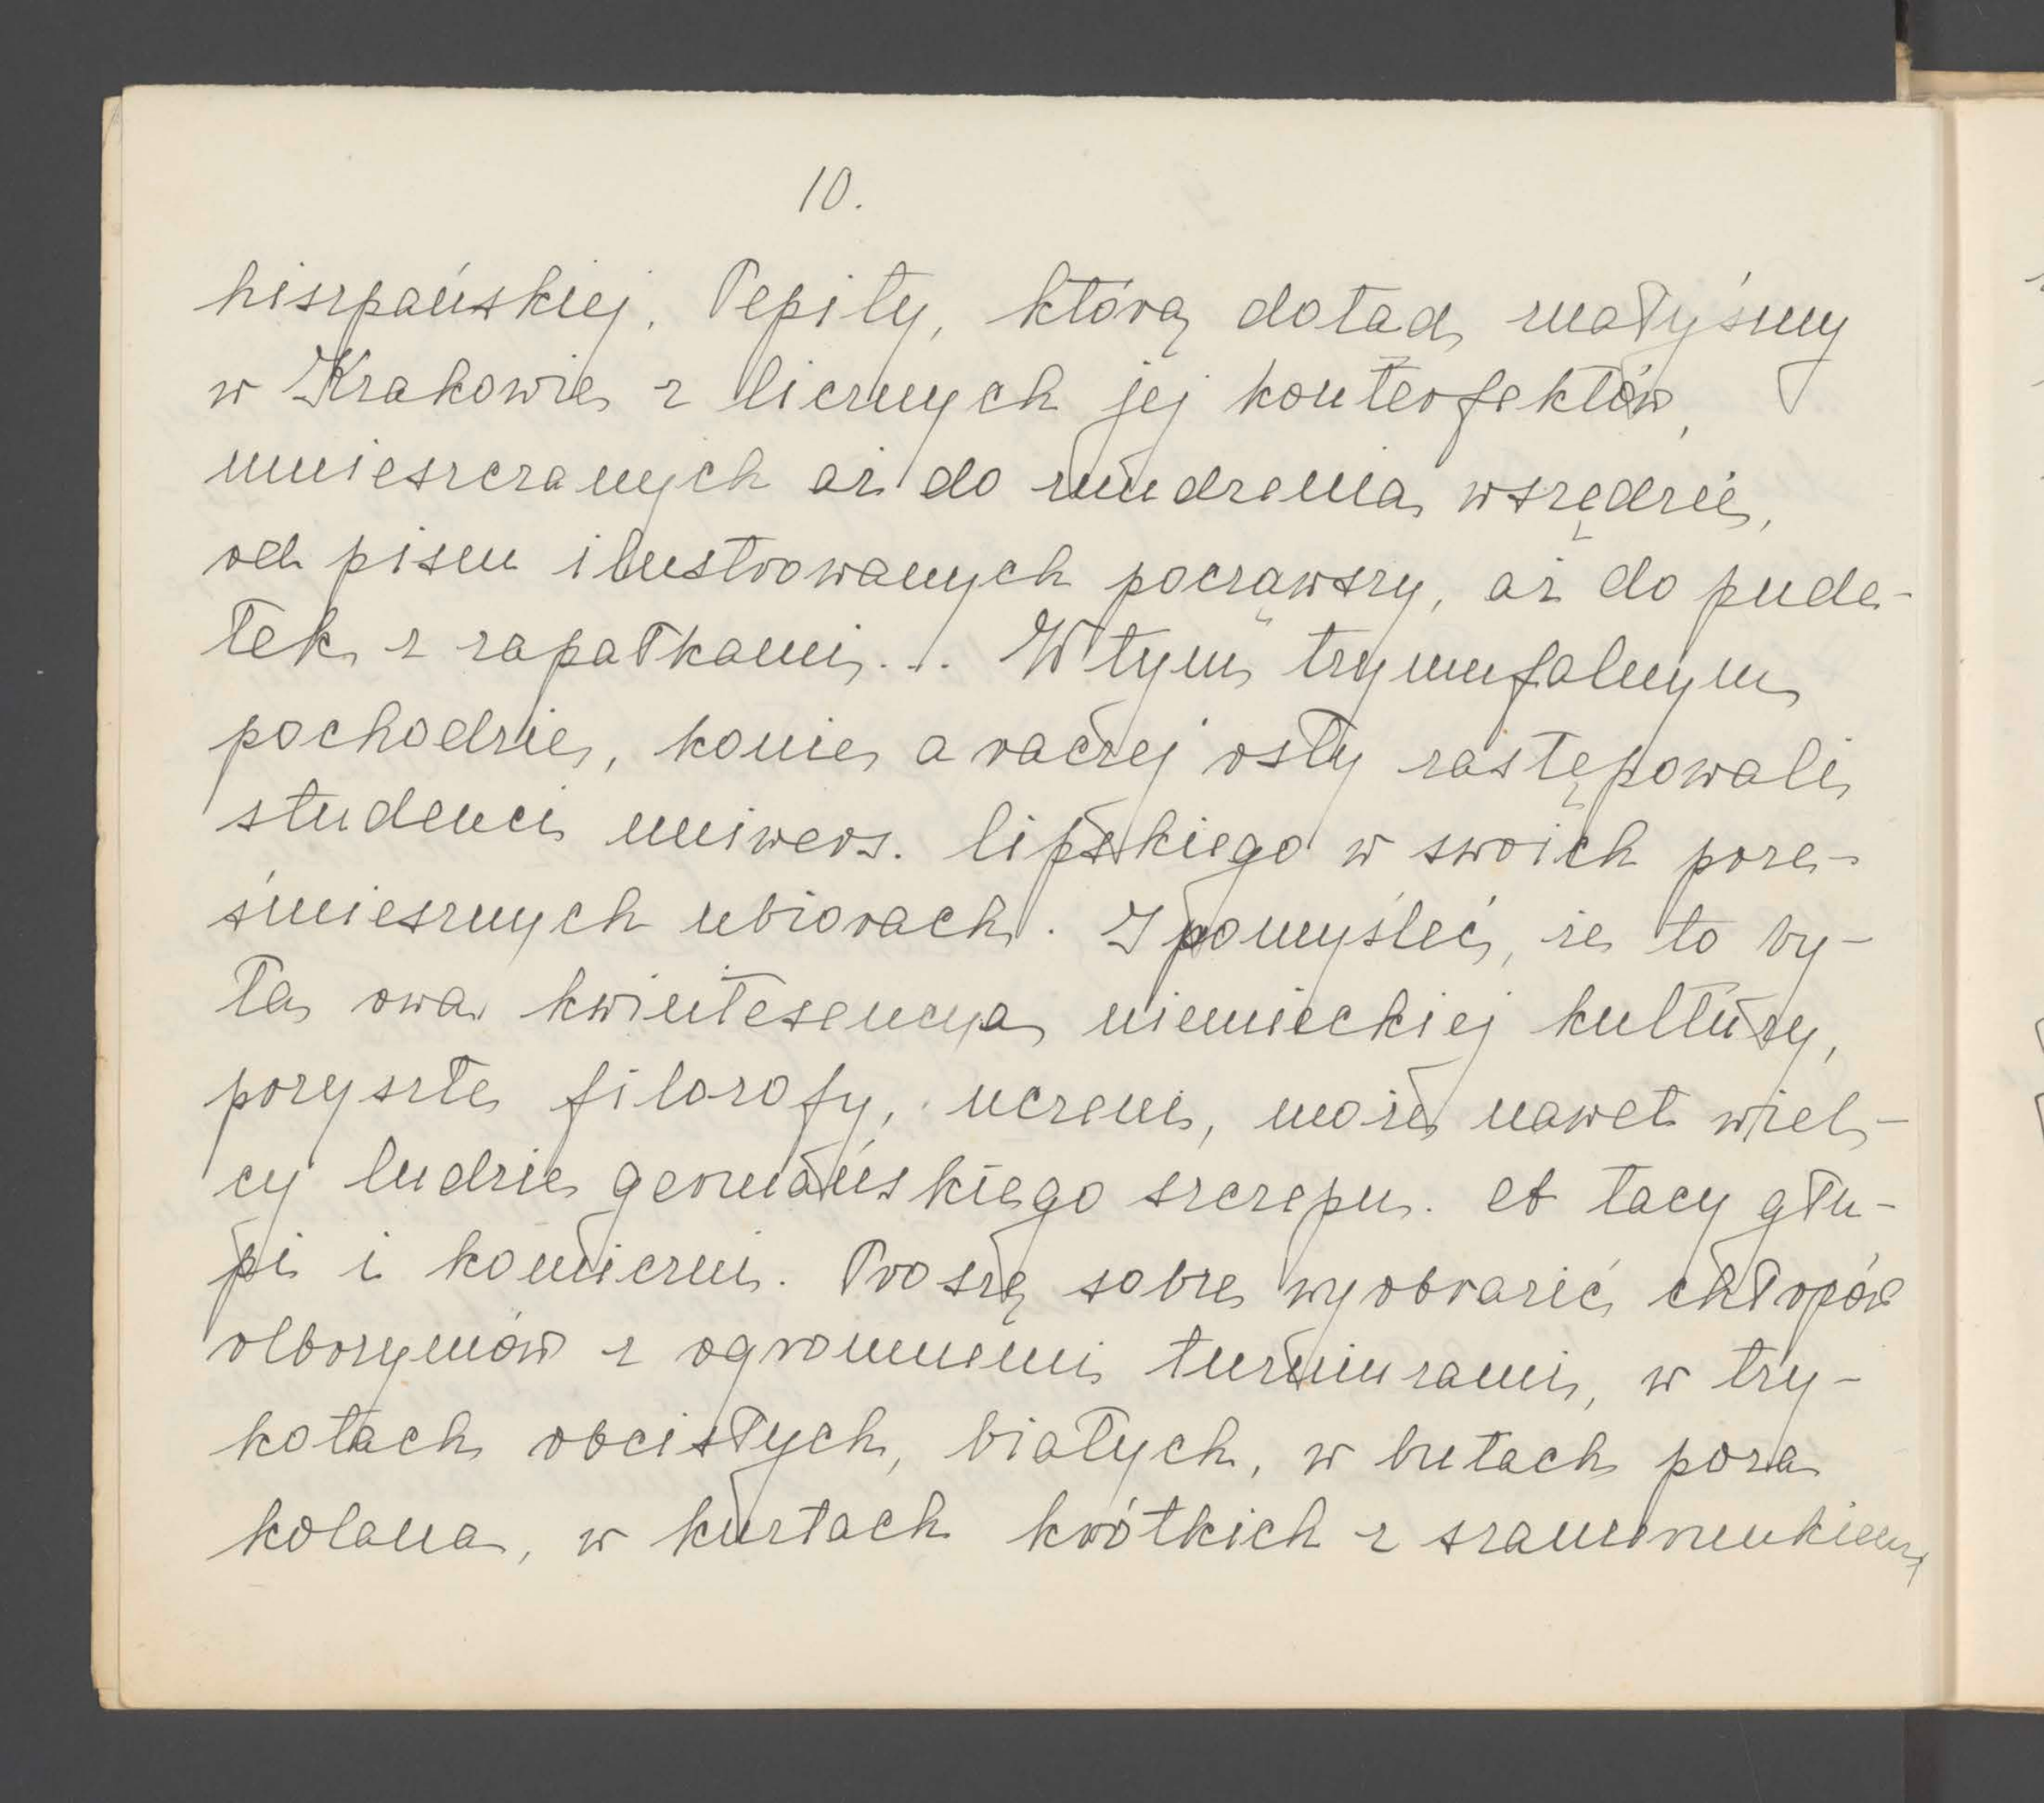 10.
hiszpańskiej, Pepity, którą dotąd znałyśmy
w Krakowie z licznych jej konterfektów,
umieszczanych aż do znudzenia wszędzie,
od pism ilustrowanych począwszy, aż do pude-
łek z zapałkami... W tym tryumfalnym
pochodzie, konie, a raczej osły zastępowali
studenci uniwers. lipskiego w swoich prze-
śmiesznych ubiorach. I pomyśleć, że to by-
ła owa kwintesencya niemieckiej kultury,
przyszłe filozofy, uczeni, może nawet wiel-
cy ludzie germańskiego szczepu. A tacy głu-
pi i komiczni. Proszę sobie wyobrazić chłopów
olbrzymów z ogromnemi turniurami, w try-
kotach obcisłych, białych, w butach poza
kolana, w kurtach krótkich z szamerunkiem